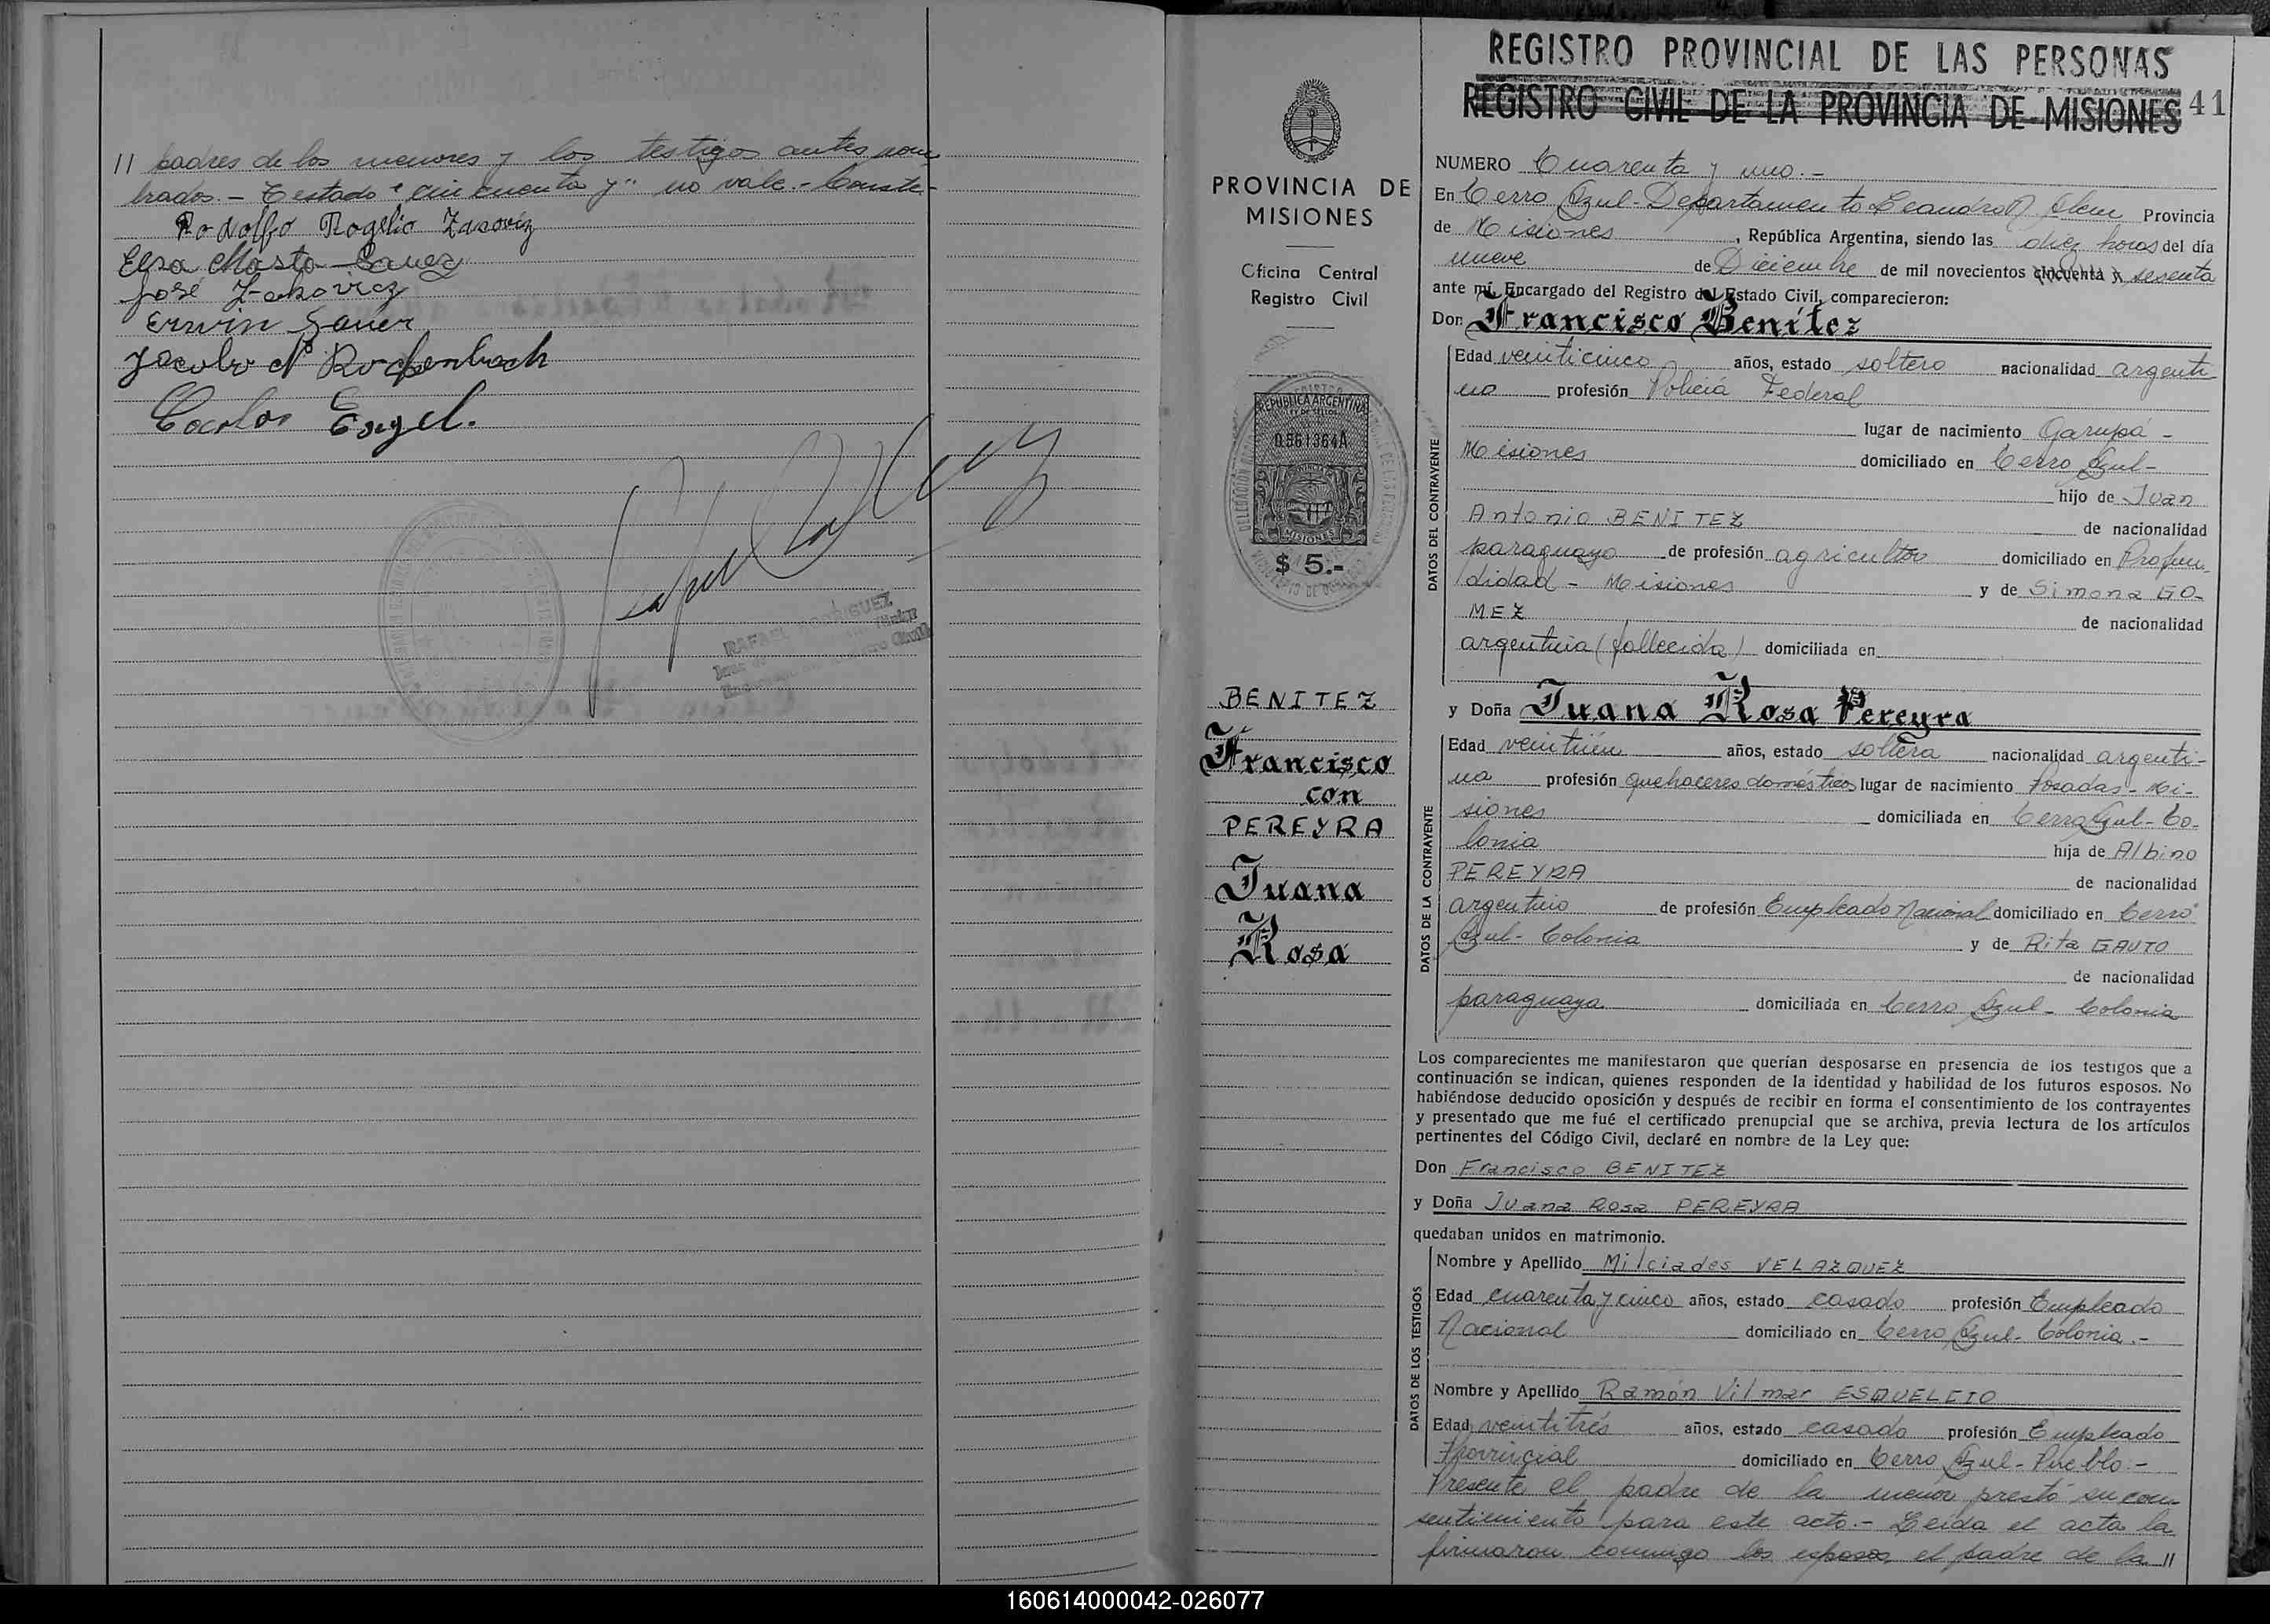 // padres de los menores y los testigos antes nom
brados.- Testado "cincuenta y" no vale.- Conste.-
Rodolfo Rogelio Zacoviz
Elsa Marta Sauer
José Zakovicz
Erwin Sauer
Jacobo N Rodenbusch
Carlos Engel.
RAFAEL RODRIGUEZ
REGISTRO PROVINCIAL DE LAS PERSONAS
REGISTRO CIVIL DE LA PROVINCIA DE MISIONES 41
PROVINCIA DE
MISIONES
Oficina Central
Registro Civil
REPUBLICA ARGENTINA
LEY DE SELLOS
0.961364A
MISIONES
$ 5.-
BENITEZ
Francisco
con
PEREYRA
Juana
Rosa
NUMERO Cuarenta y uno.-
En Cerro Azul-Departamento Leandro N Alem Provincia
de Misiones, República Argentina, siendo las diez horas del día
nueve de Diciembre de mil novecientos cincuenta y sesenta
ante mí, Encargado del Registro del Estado Civil, comparecieron:
Don Francisco Benítez
DATOS DEL CONTRAYENTE
Edad veinticinco años, estado soltero nacionalidad argenti
no profesión Policía Federal
lugar de nacimiento Garupá -
Misiones domiciliado en Cerro Azul-
hijo de Juan
Antonio BENITEZ de nacionalidad
paraguayo de profesión agricultor domiciliado en Profun
didad - Misiones y de Simona GO-
MEZ de nacionalidad
argentina (fallecida) domiciliada en
y Doña Juana Rosa Pereyra
DATOS DE LA CONTRAYENTE
Edad veintiún años, estado soltera nacionalidad argenti-
na profesión quehaceres domésticos lugar de nacimiento Posadas - Mi-
siones domiciliada en Cerro Azul-Co-
lonia hija de Albino
PEREYRA de nacionalidad
argentino de profesión Empleado Nacional domiciliado en Cerro
Azul- Colonia y de Rita GAUTO
de nacionalidad
paraguaya domiciliada en Cerro Azul - Colonia
Los comparecientes me manifestaron que querían desposarse en presencia de los testigos que a
continuación se indican, quienes responden de la identidad y habilidad de los futuros esposos. No
habiéndose deducido oposición y después de recibir en forma el consentimiento de los contrayentes
y presentado que me fué el certificado prenupcial que se archiva, previa lectura de los artículos
pertinentes del Código Civil, declaré en nombre de la Ley que:
Don Francisco BENITEZ
y Doña Juana Rosa PEREYRA
quedaban unidos en matrimonio.
DATOS DE LOS TESTIGOS
Nombre y Apellido Milciades VELAZQUEZ
Edad cuarenta y cinco años, estado casado profesión Empleado
Nacional domiciliado en Cerro Azul- Colonia.-
Nombre y Apellido Ramón Vilmar ESQUELEIO
Edad veintitrés años, estado casado profesión Empleado
Provincial domiciliado en Cerro Azul- Pueblo.-
Presente el padre de la menor prestó su con
sentimiento para este acto.- Leída el acta la
firmaron conmigo los esposos, el padre de la //
160614000042-026077